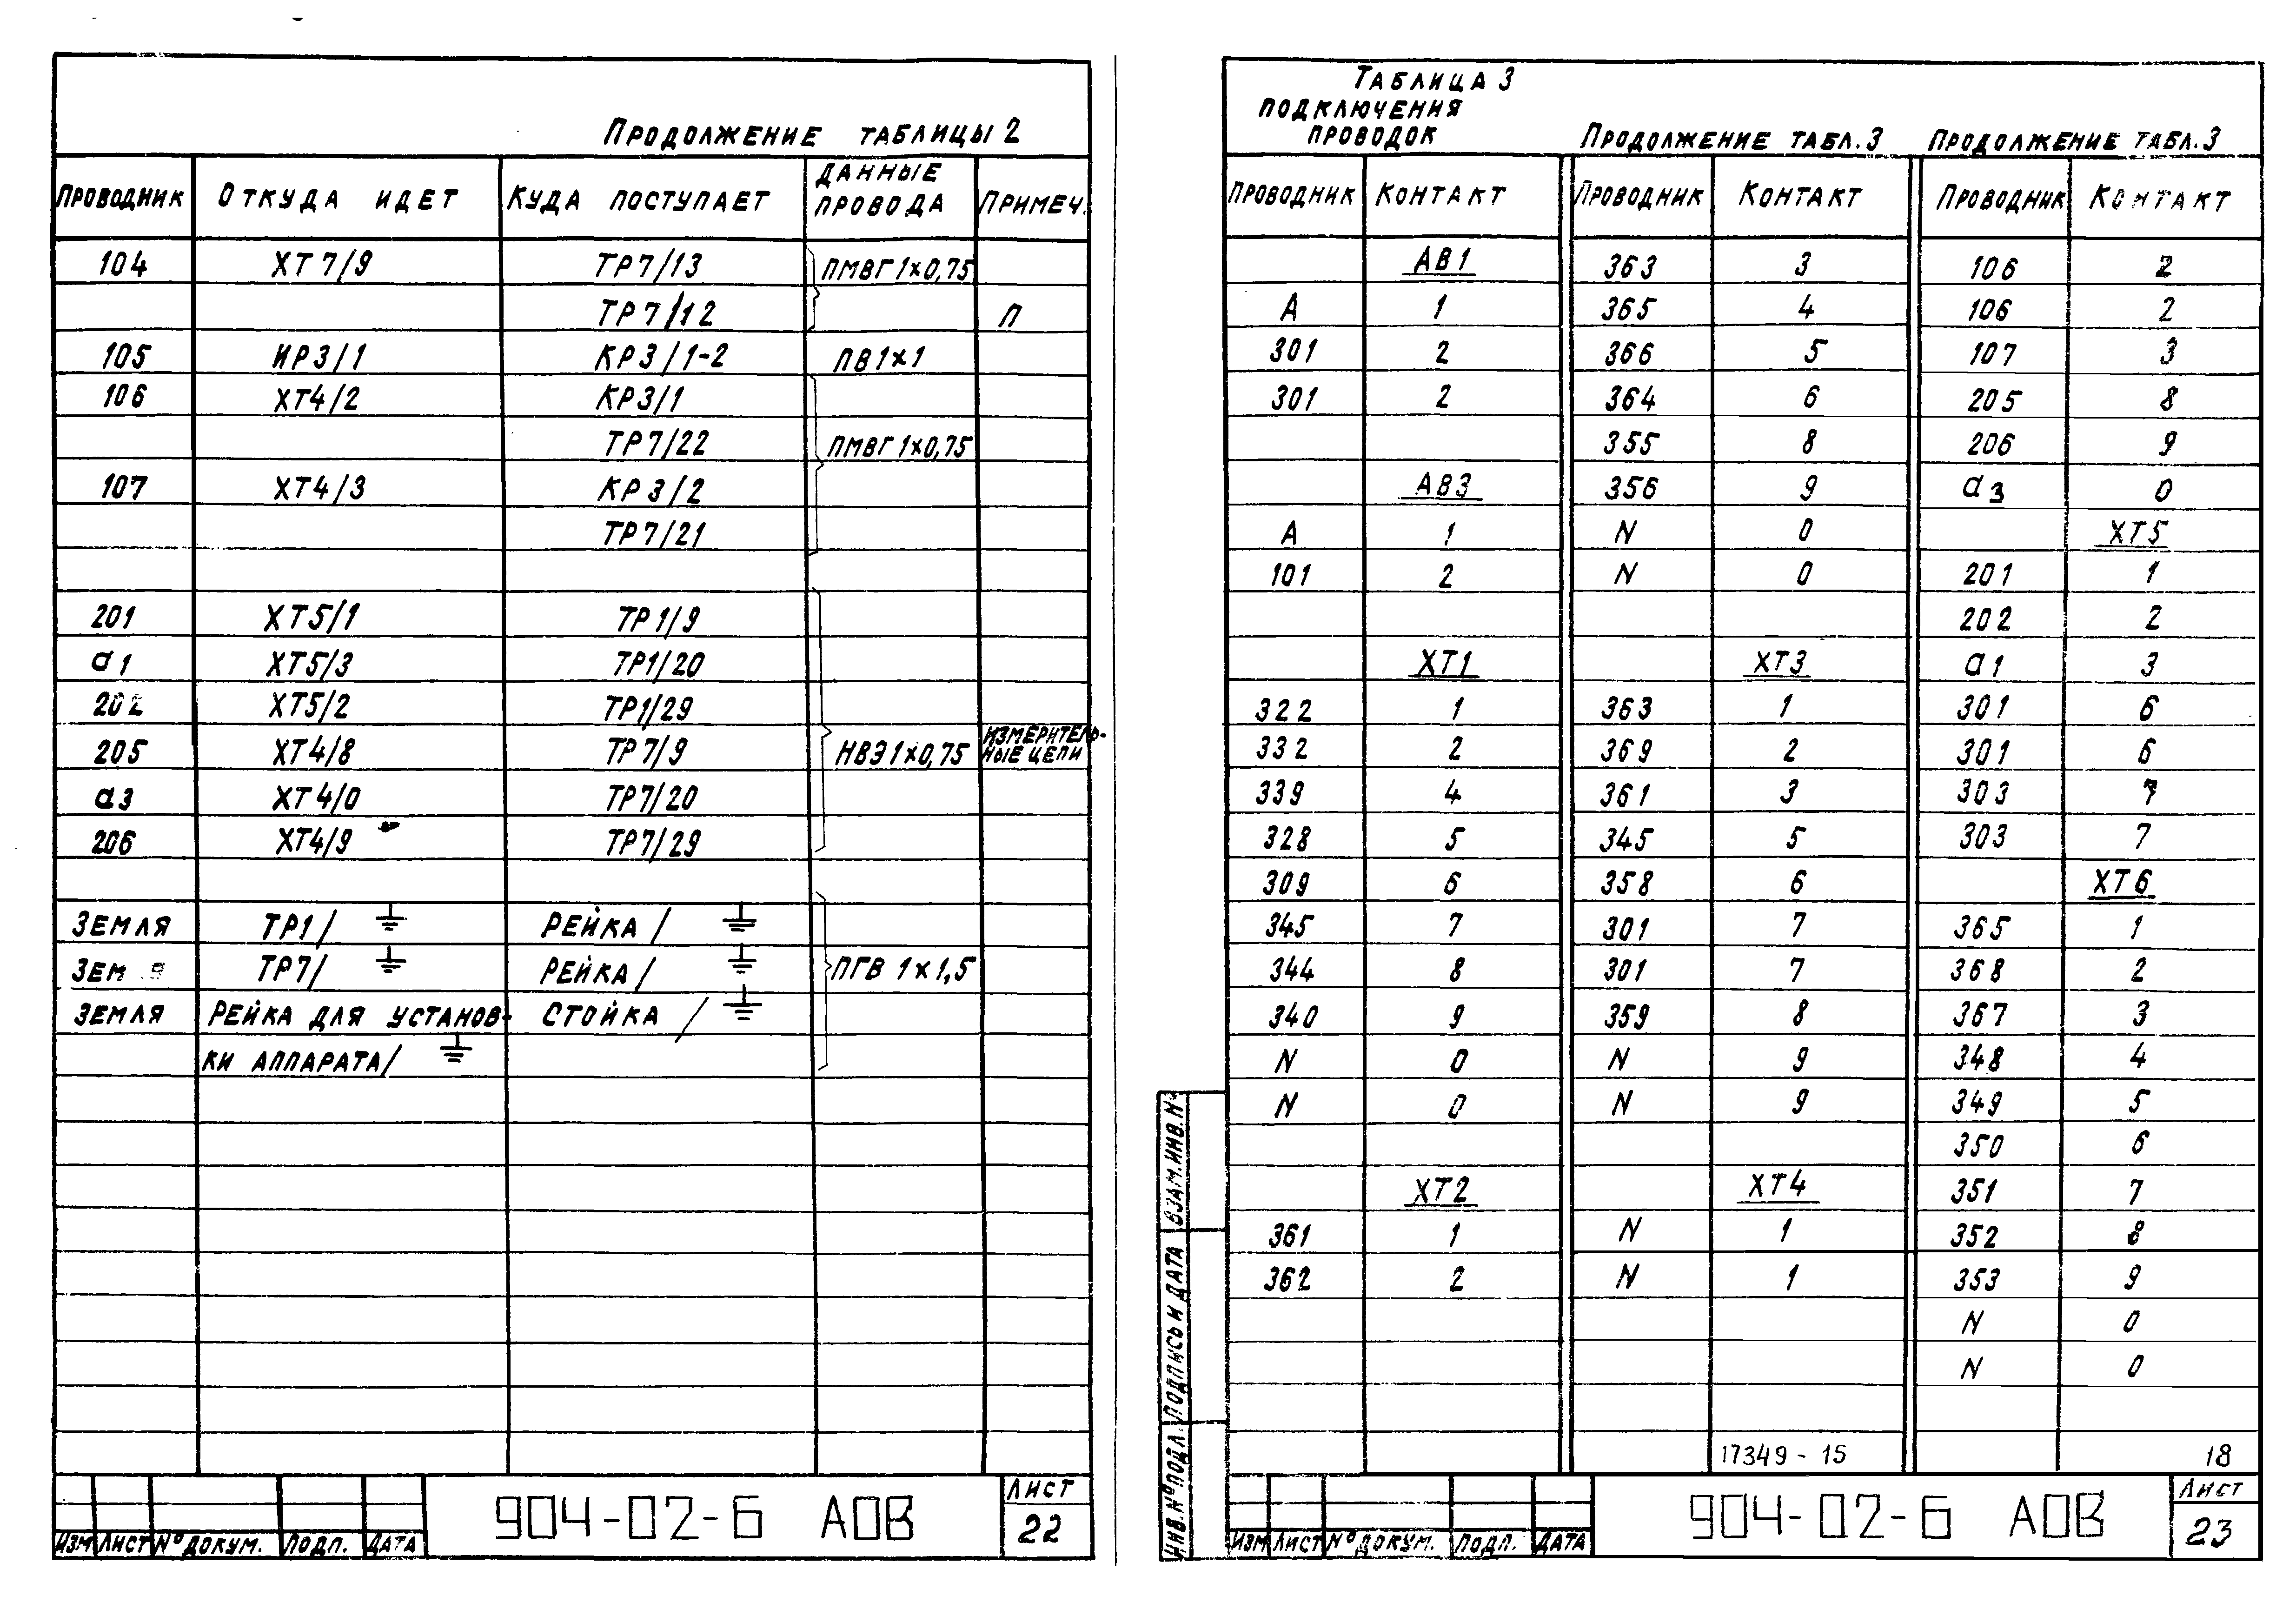 Продолжение таблицы 2
Проводник Откуда идет Куда поступает Данные провода Примеч.
104 ХТ7/9 ТР7/13 ПМВГ 1×0,75
ТР7/12 П
105 ИР3/1 КР3/1-2 ПВ1×1
106 ХТ4/2 КР3/1
ТР7/22 ПМВГ 1×0,75
107 ХТ4/3 КР3/2
ТР7/21
201 ХТ5/1 ТР1/9
а1 ХТ5/3 ТР1/20
202 ХТ5/2 ТР1/29
205 ХТ4/8 ТР7/9 НВЭ1×0,75 Измеритель-
ные цепи
а3 ХТ4/0 ТР7/20
206 ХТ4/9 ТР7/29
Земля ТР1/⏚ Рейка/⏚
Зем я ТР7/⏚ Рейка/⏚ ПГВ 1×1,5
Земля Рейка для установ- Стойка/⏚
ки аппарата/⏚
Изм Лист № докум. Подп. Дата
904-02-6 АОВ
Лист
22
Таблица 3
подключения
проводок
Проводник Контакт
АВ1
А 1
301 2
301 2
АВ3
А 1
101 2
ХТ1
322 1
332 2
339 4
328 5
309 6
345 7
344 8
340 9
N 0
N 0
ХТ2
361 1
362 2
Продолжение табл.3
Проводник Контакт
363 3
365 4
366 5
364 6
355 8
356 9
N 0
N 0
ХТ3
363 1
369 2
361 3
345 5
358 6
301 7
301 7
359 8
N 9
N 9
ХТ4
N 1
N 1
Продолжение табл.3
Проводник Контакт
106 2
106 2
107 3
205 8
206 9
а3 0
ХТ5
201 1
202 2
а1 3
301 6
301 6
303 7
303 7
ХТ6
365 1
368 2
367 3
348 4
349 5
350 6
351 7
352 8
353 9
N 0
N 0
17349-15 18
Инв.№ подл. Подпись и дата Взам.инв.№
Изм Лист № докум. Подп. Дата
904-02-6 АОВ
Лист
23